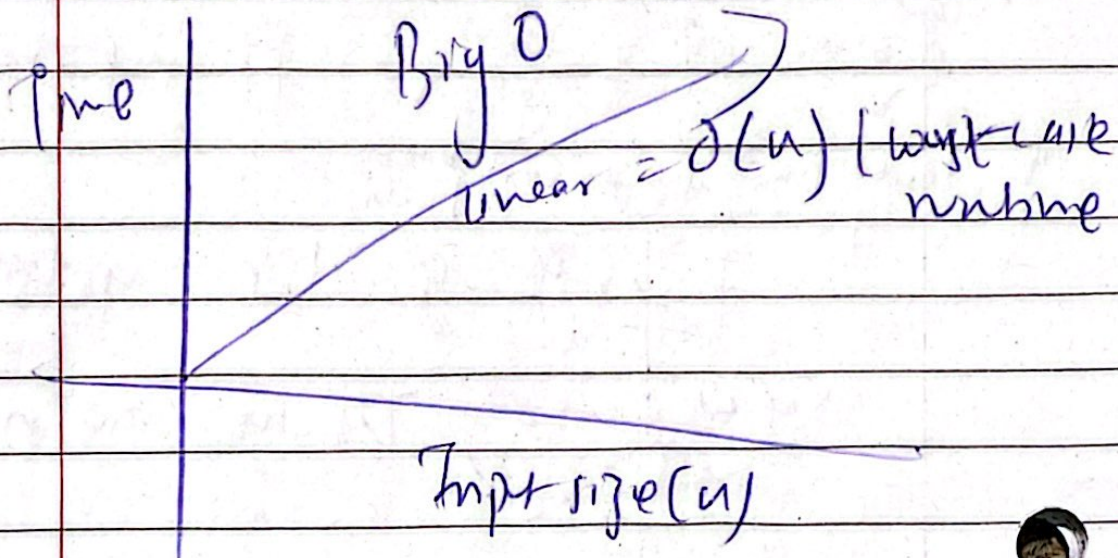 Big O
Time
linear = O(n) (worst-case
runtime
Input size (n)